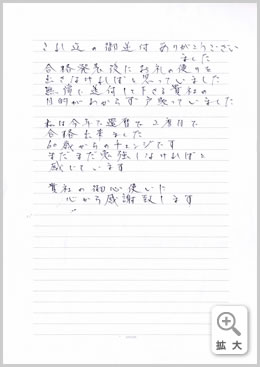 これ迄の御送付 ありがとうござい
ました
合格発表後にお礼の便りを
出さなければと思っていました
無償で送付して下さる貴社の
目的がわからず 戸惑っていました
私は今年で還暦で 2ヶ月で
合格出来ました
60歳からのチャレンジです
まだまだ勉強しなければと
感じています
貴社の御心使いに
心から感謝致します
拡大